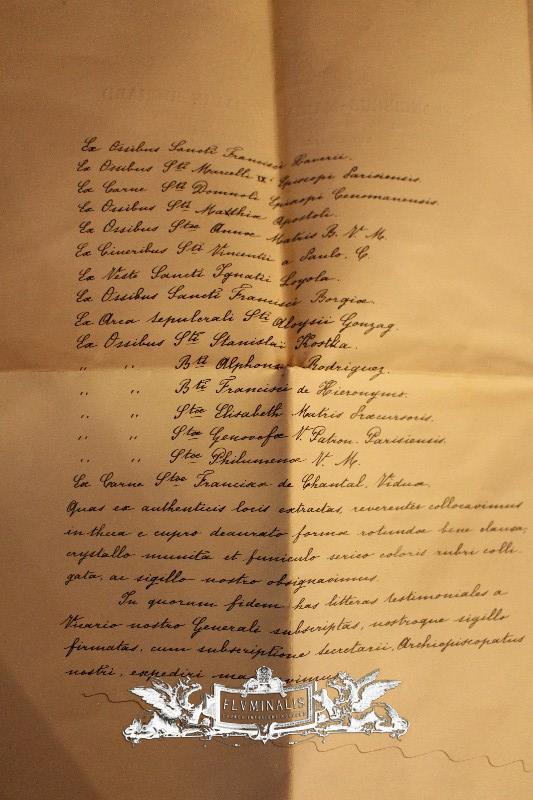 Ex Ossibus Sancti Francisci Xaverii.
Ex Ossibus Sti Marcelli Episcopi Parisiensis.
Ex Carne Sti Domnoli Episcopi Cenomanensis.
Ex Ossibus Sti Matthiæ Apostoli.
Ex Ossibus Stæ Annæ Matris B. V. M.
Ex Cineribus Sti Vincentii a Paulo. C.
Ex Veste Sancti Ignatii Loyola.
Ex Ossibus Sancti Francisci Borgiæ.
Ex Arca sepulcrali Sti Aloysii Gonzag.
Ex Ossibus Sti Stanislai Kostka.
" " Bti Alphonsi Rodriguez.
" " Bti Francisci de Hieronymo.
" " Stæ Elisabeth Matris Præcursoris.
" " Stæ Genovefæ V. Patron. Parisiensis.
" " Stæ Philumenæ V. M.
Ex Carne Stæ Franciscæ de Chantal, Viduæ.
Quas ex authenticis locis extractas, reverenter collocavimus
in theca e cupro deaurato formæ rotundæ bene clausa,
crystallo munita et funiculo serico coloris rubri colli-
gata, ac sigillo nostro obsignavimus.
In quorum fidem has litteras testimoniales a
Vicario nostro Generali subscriptas, nostroque sigillo
firmatas, cum subscriptione secretarii Archiepiscopatus
nostri, expediri mandavimus.
FLVMINALIS